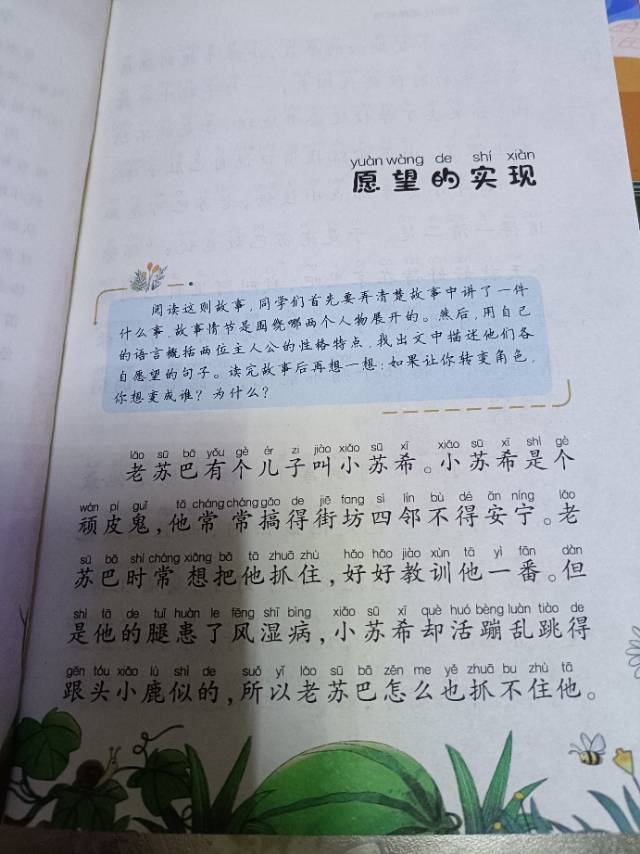 yuàn wàng de shí xiàn
愿望的实现
阅读这则故事,同学们首先要弄清楚故事中讲了一件
什么事,故事情节是围绕哪两个人物展开的。然后,用自己
的语言概括两位主人公的性格特点,找出文中描述他们各
自愿望的句子。读完故事后再想一想:如果让你转变角色,
你想变成谁?为什么?
lǎo sū bā yǒu gè ér zi jiào xiǎo sū xī xiǎo sū xī shì gè
老苏巴有个儿子叫小苏希。小苏希是个
wán pí guǐ tā cháng cháng gǎo de jiē fang sì lín bù dé ān níng lǎo
顽皮鬼,他常常搞得街坊四邻不得安宁。老
sū bā shí cháng xiǎng bǎ tā zhuā zhù hǎo hǎo jiào xùn tā yì fān dàn
苏巴时常 想把他抓住,好好教训他一番。但
shì tā de tuǐ huàn le fēng shī bìng xiǎo sū xī què huó bèng luàn tiào de
是他的腿患了风湿病,小苏希却活蹦乱跳得
gēn tóu xiǎo lù shì de suǒ yǐ lǎo sū bā zěn me yě zhuā bu zhù tā
跟头小鹿似的,所以老苏巴怎么也抓不住他。